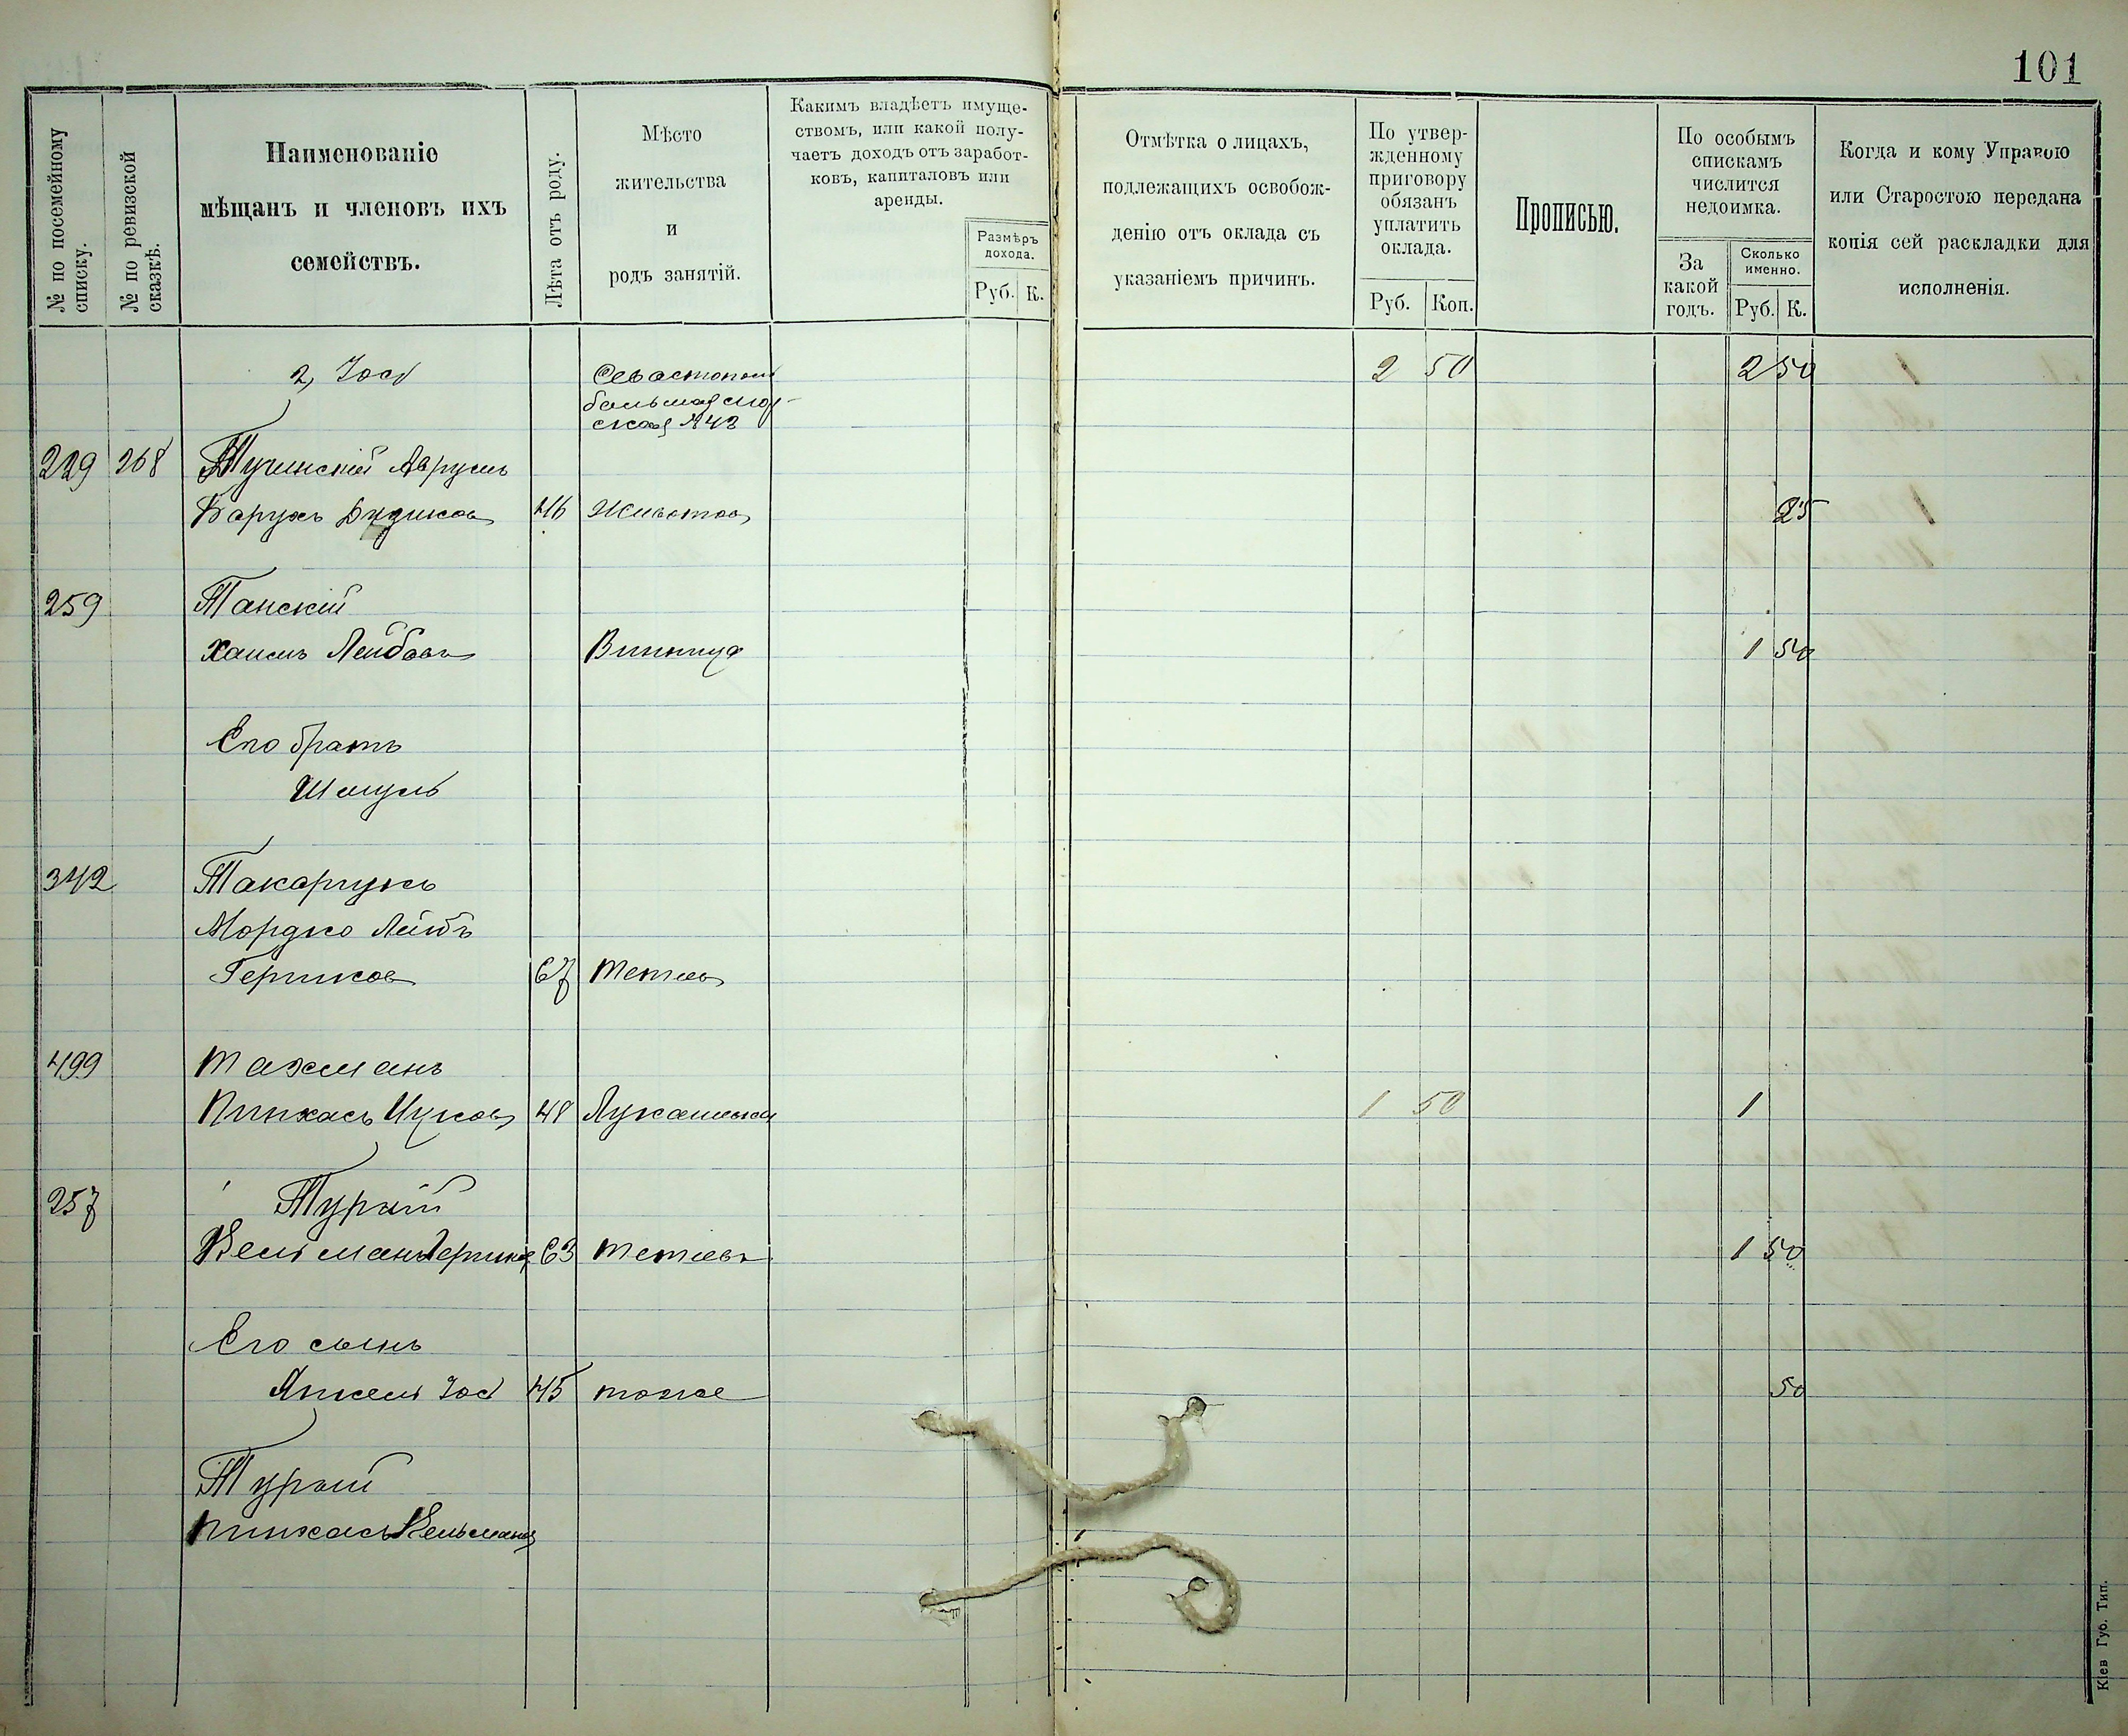 101
№ по посемейному списку.
№ по ревизской сказкѣ.
Наименованіе
мѣщанъ и членовъ ихъ
семействъ.
Лѣта отъ роду.
Мѣсто
жительства
и
родъ занятій.
Какимъ владѣетъ имуще-
ствомъ, или какой полу-
чаетъ доходъ отъ заработ-
ковъ, капиталовъ или
аренды.
Размѣръ
дохода.
Руб. К.
Отмѣтка о лицахъ,
подлежащихъ освобож-
денію отъ оклада съ
указаніемъ причинъ.
По утвер-
жденному
приговору
обязанъ
уплатить
оклада.
Руб. Коп.
Прописью.
По особымъ
спискамъ
числится
недоимка.
За
какой
годъ.
Сколько
именно.
Руб. К.
Когда и кому Управою
или Старостою передана
копія сей раскладки для
исполненія.
2, Іос Севастополь 2 50 2 50
большая мор-
ская №42
229 268 Тучинскій Аврумъ
Барухъ 46 Животов 25
259 Танскій
Хаимъ Лейбовъ Винница 1 50
Его братъ
Шмуль
342 Токарчукъ
Мордко Лейбъ
Гершков 67 Тетіев
499 Тахманъ
Пинхасъ Ицков 48 Лукашевка 1 50 1
257 Турый
Кельман Гершков 63 Тетіевъ 1 50
Его сынъ
Янкель Іос 45 тоже 50
Турый
Пинхасъ Кельманов
Кіев Губ. Тип.